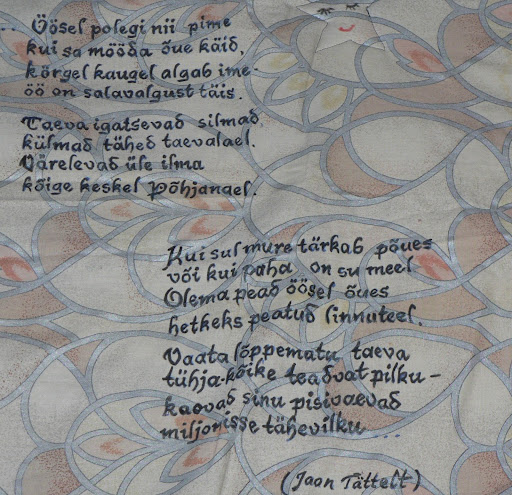 ... Öösel polegi nii pime
kui sa mööda õue käid,
kõrgel kaugel algab ime-
öö on salavalgust täis.
Taeva igatsevad silmad,
külmad tähed taevalael.
Värelevad üle ilma
kõige keskel Põhjanael.
Kui sul mure tärkab põues
või kui paha on su meel
Olema pead öösel õues
hetkeks peatud linnuteel.
Vaata lõppematu taeva
tühja-kõike teadvat pilku -
kaovad sinu pisivaevad
miljonisse tähevilku...
(Jaan Tättelt)